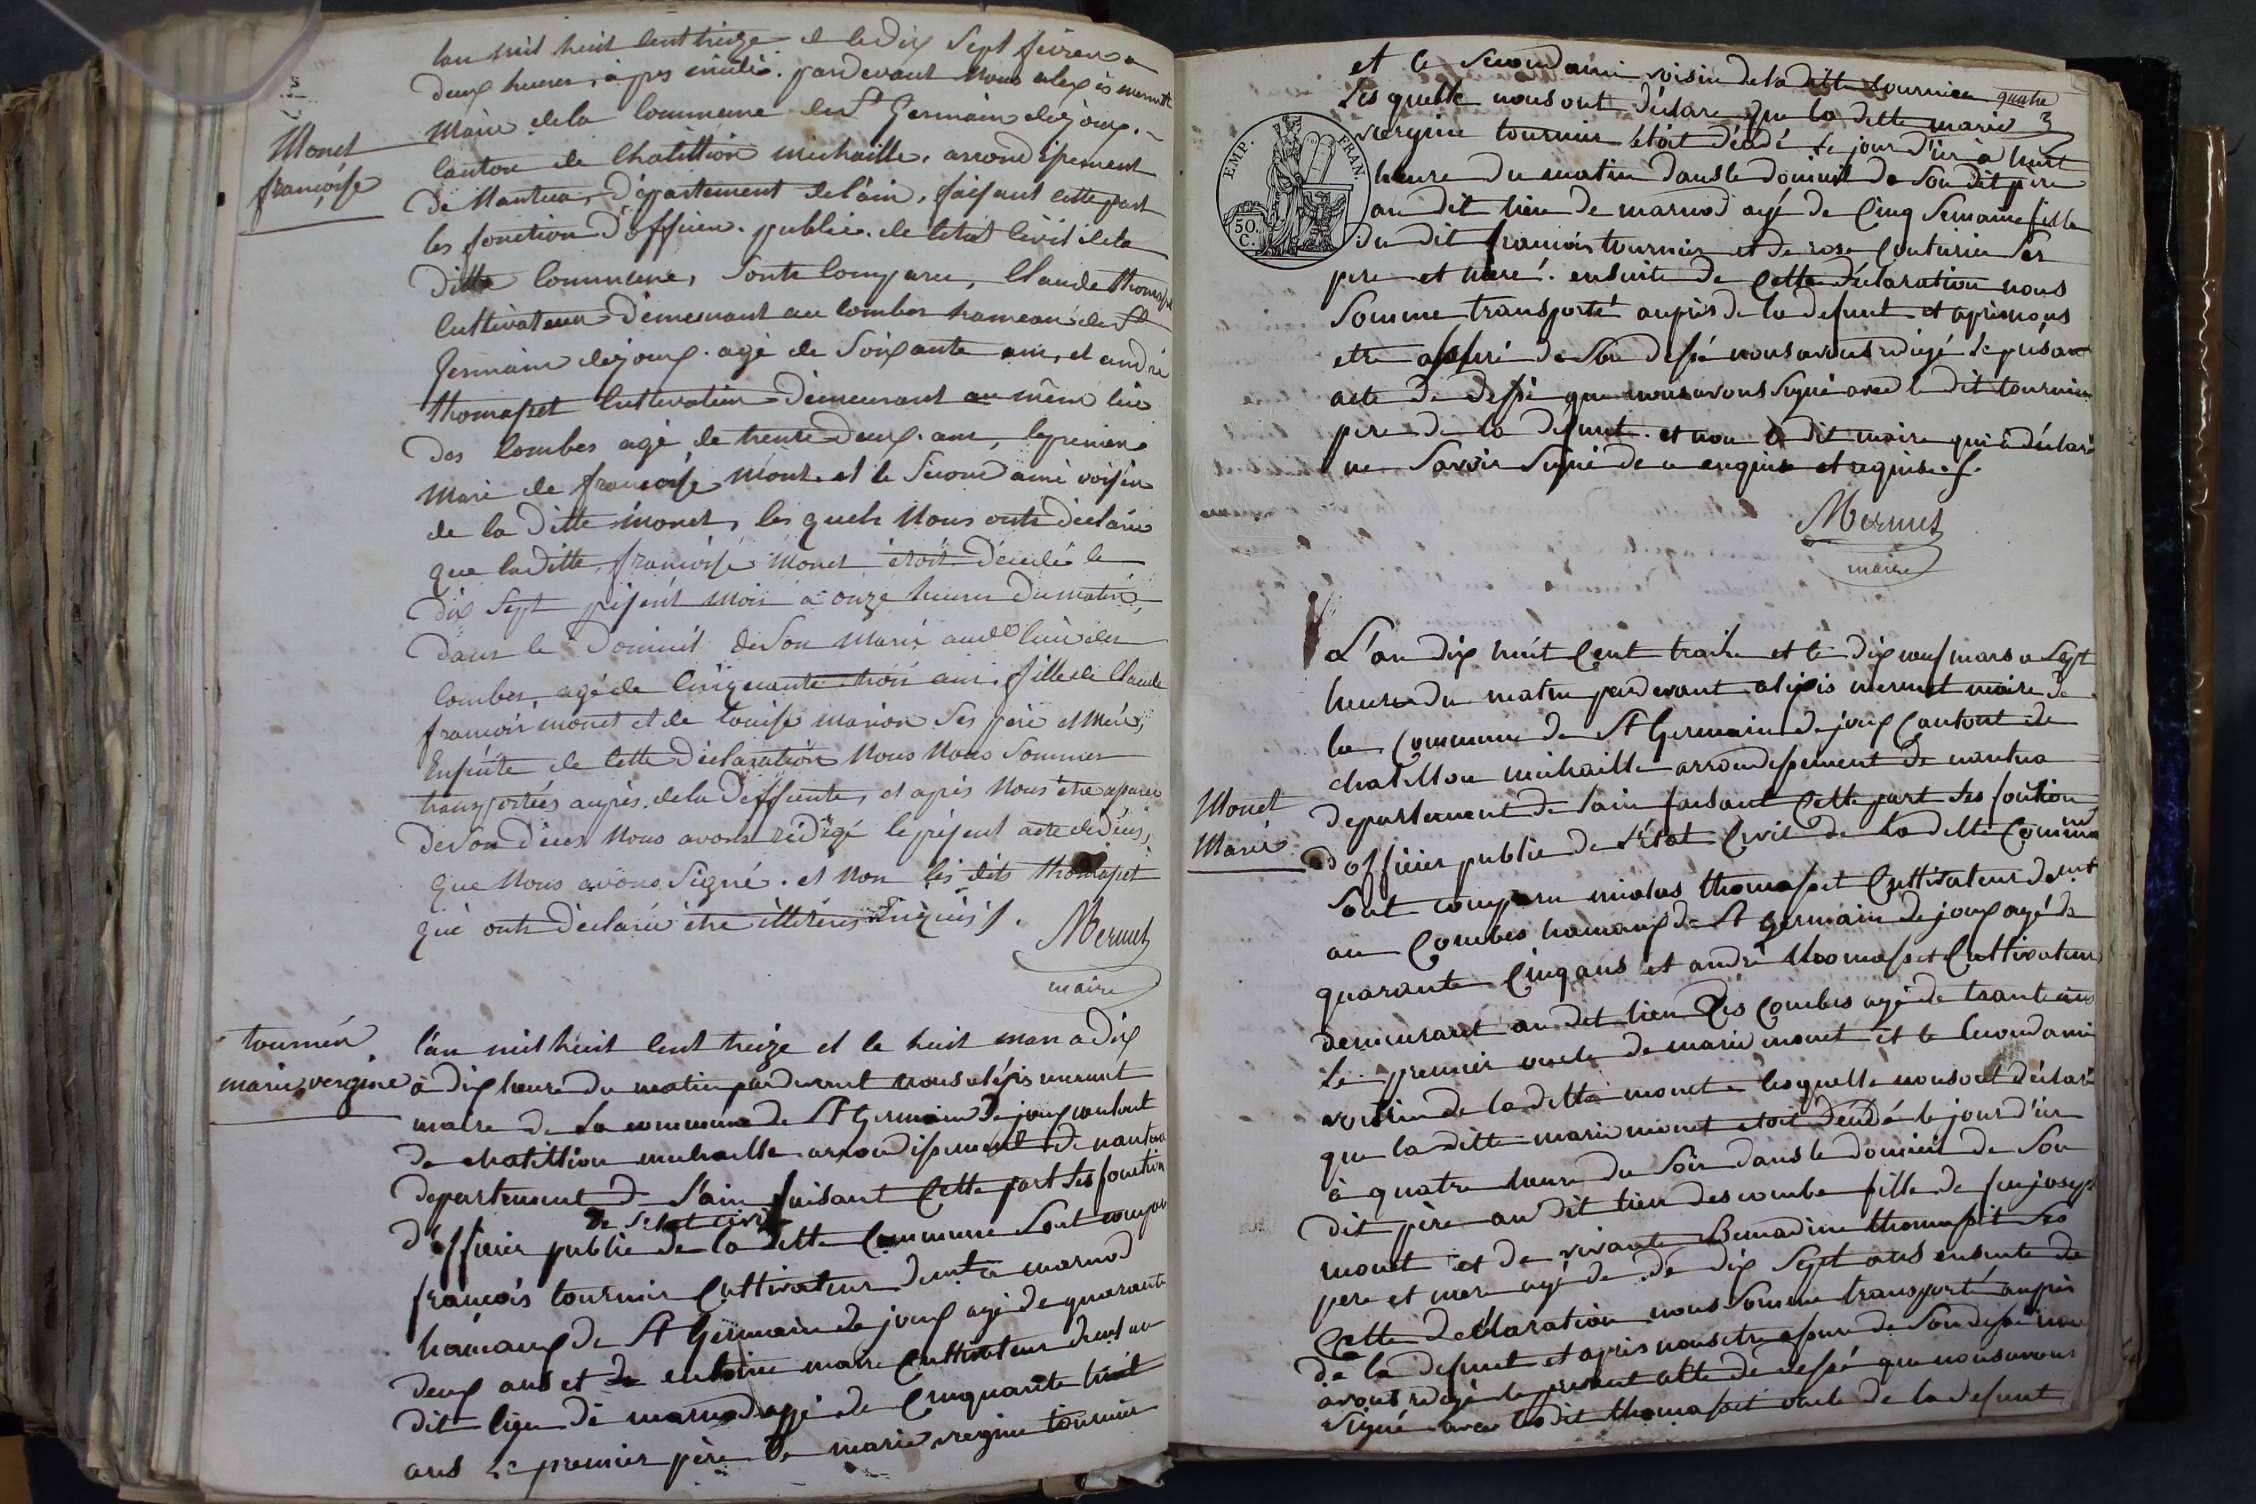 lan mil huit cent treize et le dix sept fevrier a
deux heures, après midi. pardevant nous alexis mermet
Maire de la commune de St Germain dejoux.
Canton de Chatillion michaille, arrondissement
de Nantua, département de l'ain, faisant cette part
les fonction d'officier. public. de l'etat civil de la
ditte commune, sonts comparu, Claude thomasset
Cultivateur demeurant au combes hameau de St
Germain dejoux. agé de soixante ans, et andré
thomasset Cultivateur demeurant au même lieu
des combes agé de trente deux. ans, le premier
Mari de françoise monet et le second ami voisin
de la ditte monet, les quels Nous onts déclaré
que la ditte, françoise Monet étoit décédée le
dix sept présent mois à onze heures du matin,
dans le domicil de son Mari audt lieu des
combes, agé de cinquante trois ans. fille de Claude
françois monet et de louise marion ses père et Mère,
Ensuite de cette déclaration Nous Nous sommes
transportées auprès de la deffunte, et après Nous être assuré
de son décès Nous avons rédigé le présent acte de décès,
que Nous avons signé. et Non les dits thomasset
qui onts déclaré être illitérés Enquis /.
Mermet
maire
Monet
françoise
tournier
marie vergine
l'an mil huit cent treize et le huit mars a dix
à dix heure du matin pardevant nous alexis mermet
maire de la commune de St Germain de joux cantont
de chatillion michaille arrondissement de nantua
departement de l'ain faisant cette part les fonction
de l'etat civil
d'officier public de la ditte commune sont comparu
francois tournier Cultivateur demt a marnod
hameaux de St Germain de joux agé de quarante
deux ans et de entoine maire cultivateur demt au
dit lieu de marnod agé de cinquante huit
ans le premier père de marie vergine tournier
et le second ami voisin de la ditte tournier quatre
Les quelle nous ont déclare que la ditte marie
vergine tournier étoit décédé le jour d'ier à huit
heure du matin dans le domicil de son dit père
au dit lieu de marnod agé de cinq semaine fille
du dit francois tournier et de rose couturier ses
pere et mere. ensuite de cette déclaration nous
somme transporté auprès de la defunt et apres nous
etre assuré de son dessé nous avons redigé le present
acte de dessé que nous avons signé avec le dit tournier
pere de la defunt. et non le dit maire qui a déclaré
ne savoir signé de ce enquise et requise./.
Mermet
maire
EMP. FRAN.
50. C.
Monet
Marie
L'an dix huit cent traise et le dix neuf mars a sept
heure du matin pardevant alexis mermet maire de
la commune de St Germain de joux cantont de
chatillon michaille arrondissement de nantua
departement de l'ain faisant cette part les fontion
d'officier public de l'état civil de la ditte commune
sont comparu nicolas thomasset Cultivateur demt
au Combes hameaux de St germain de joux agé de
quarante cinq ans et andré thomasset Cultivateur
demeurant au dit lieu des combes agé de trante ans
le premier oncle de marie monet et le second ami
voisin de la ditte monet lesquelle nous ont déclaré
que la ditte marie monet etoit décédé le jour d'ier
à quatre heure du soir dans le domicil de son
dit père au dit lieu des combe fille de feu joseph
monet et de vivante Bernadine thomasset ses
pere et mere agé de de dix sept ans ensuite de
Cette declaration nous somme transporté auprès
de la defunt et après nous etre assuré de son dessé nous
avons redigé le present acte de dessé que nous avons
signé avec le dit thomasset oncle de la defunt